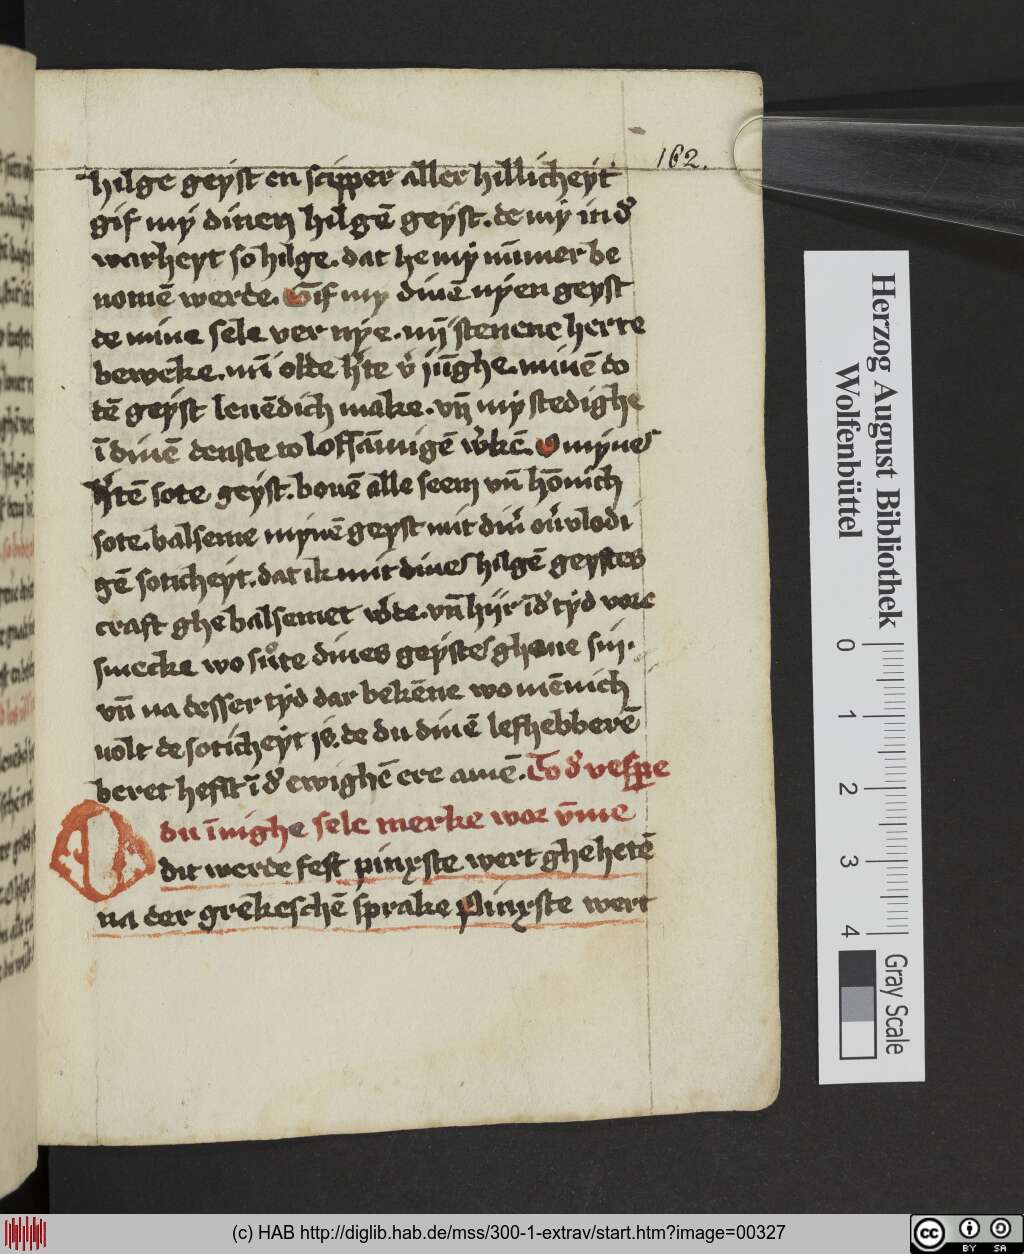 162.
hilge geyst en scipper aller hillicheyt
gif my dinen hilgē geyst. de my in d̕
warheyt so hilge. dat he my nūmer be
nomē werde. Gif my dinē nyen geyst
de mine sele ver nye. mȳ stenene herte
beweke. mī olde h̕te v̕ jūghe. minē do
dē geyst leuēdich make. vn̄ my stedighe
ī dinē denste to loffāmigē w̕kē. O mynes
h̕tē sote geyst. bouē alle seem vn̄ hōnich
sote. balseme mynē geyst mit din̕ ou̕vlodi
gē soticheyt. dat ik mit dines hilgē geystes
craft ghe balsemet w̕de. vn̄ hijr ī d̕ tyd vore
smecke wo sůte dines geystes ghaue sin.
vn̄ na desser tyd dar bekēne wo mēnich
uolt de soticheyt is. de du dinē lefhebberē
beret hefst ī d̕ ewighē ere amē. To d̕ vesp̱e
O du īnighe sele merke wor v̄me
dit werde fest pinxste wert ghehetē
na der grekeschē sprake Pinxste wert
Herzog August Bibliothek
Wolfenbüttel
0 1 2 3 4
Gray Scale
(c) HAB http://diglib.hab.de/mss/300-1-extrav/start.htm?image=00327
cc BY SA